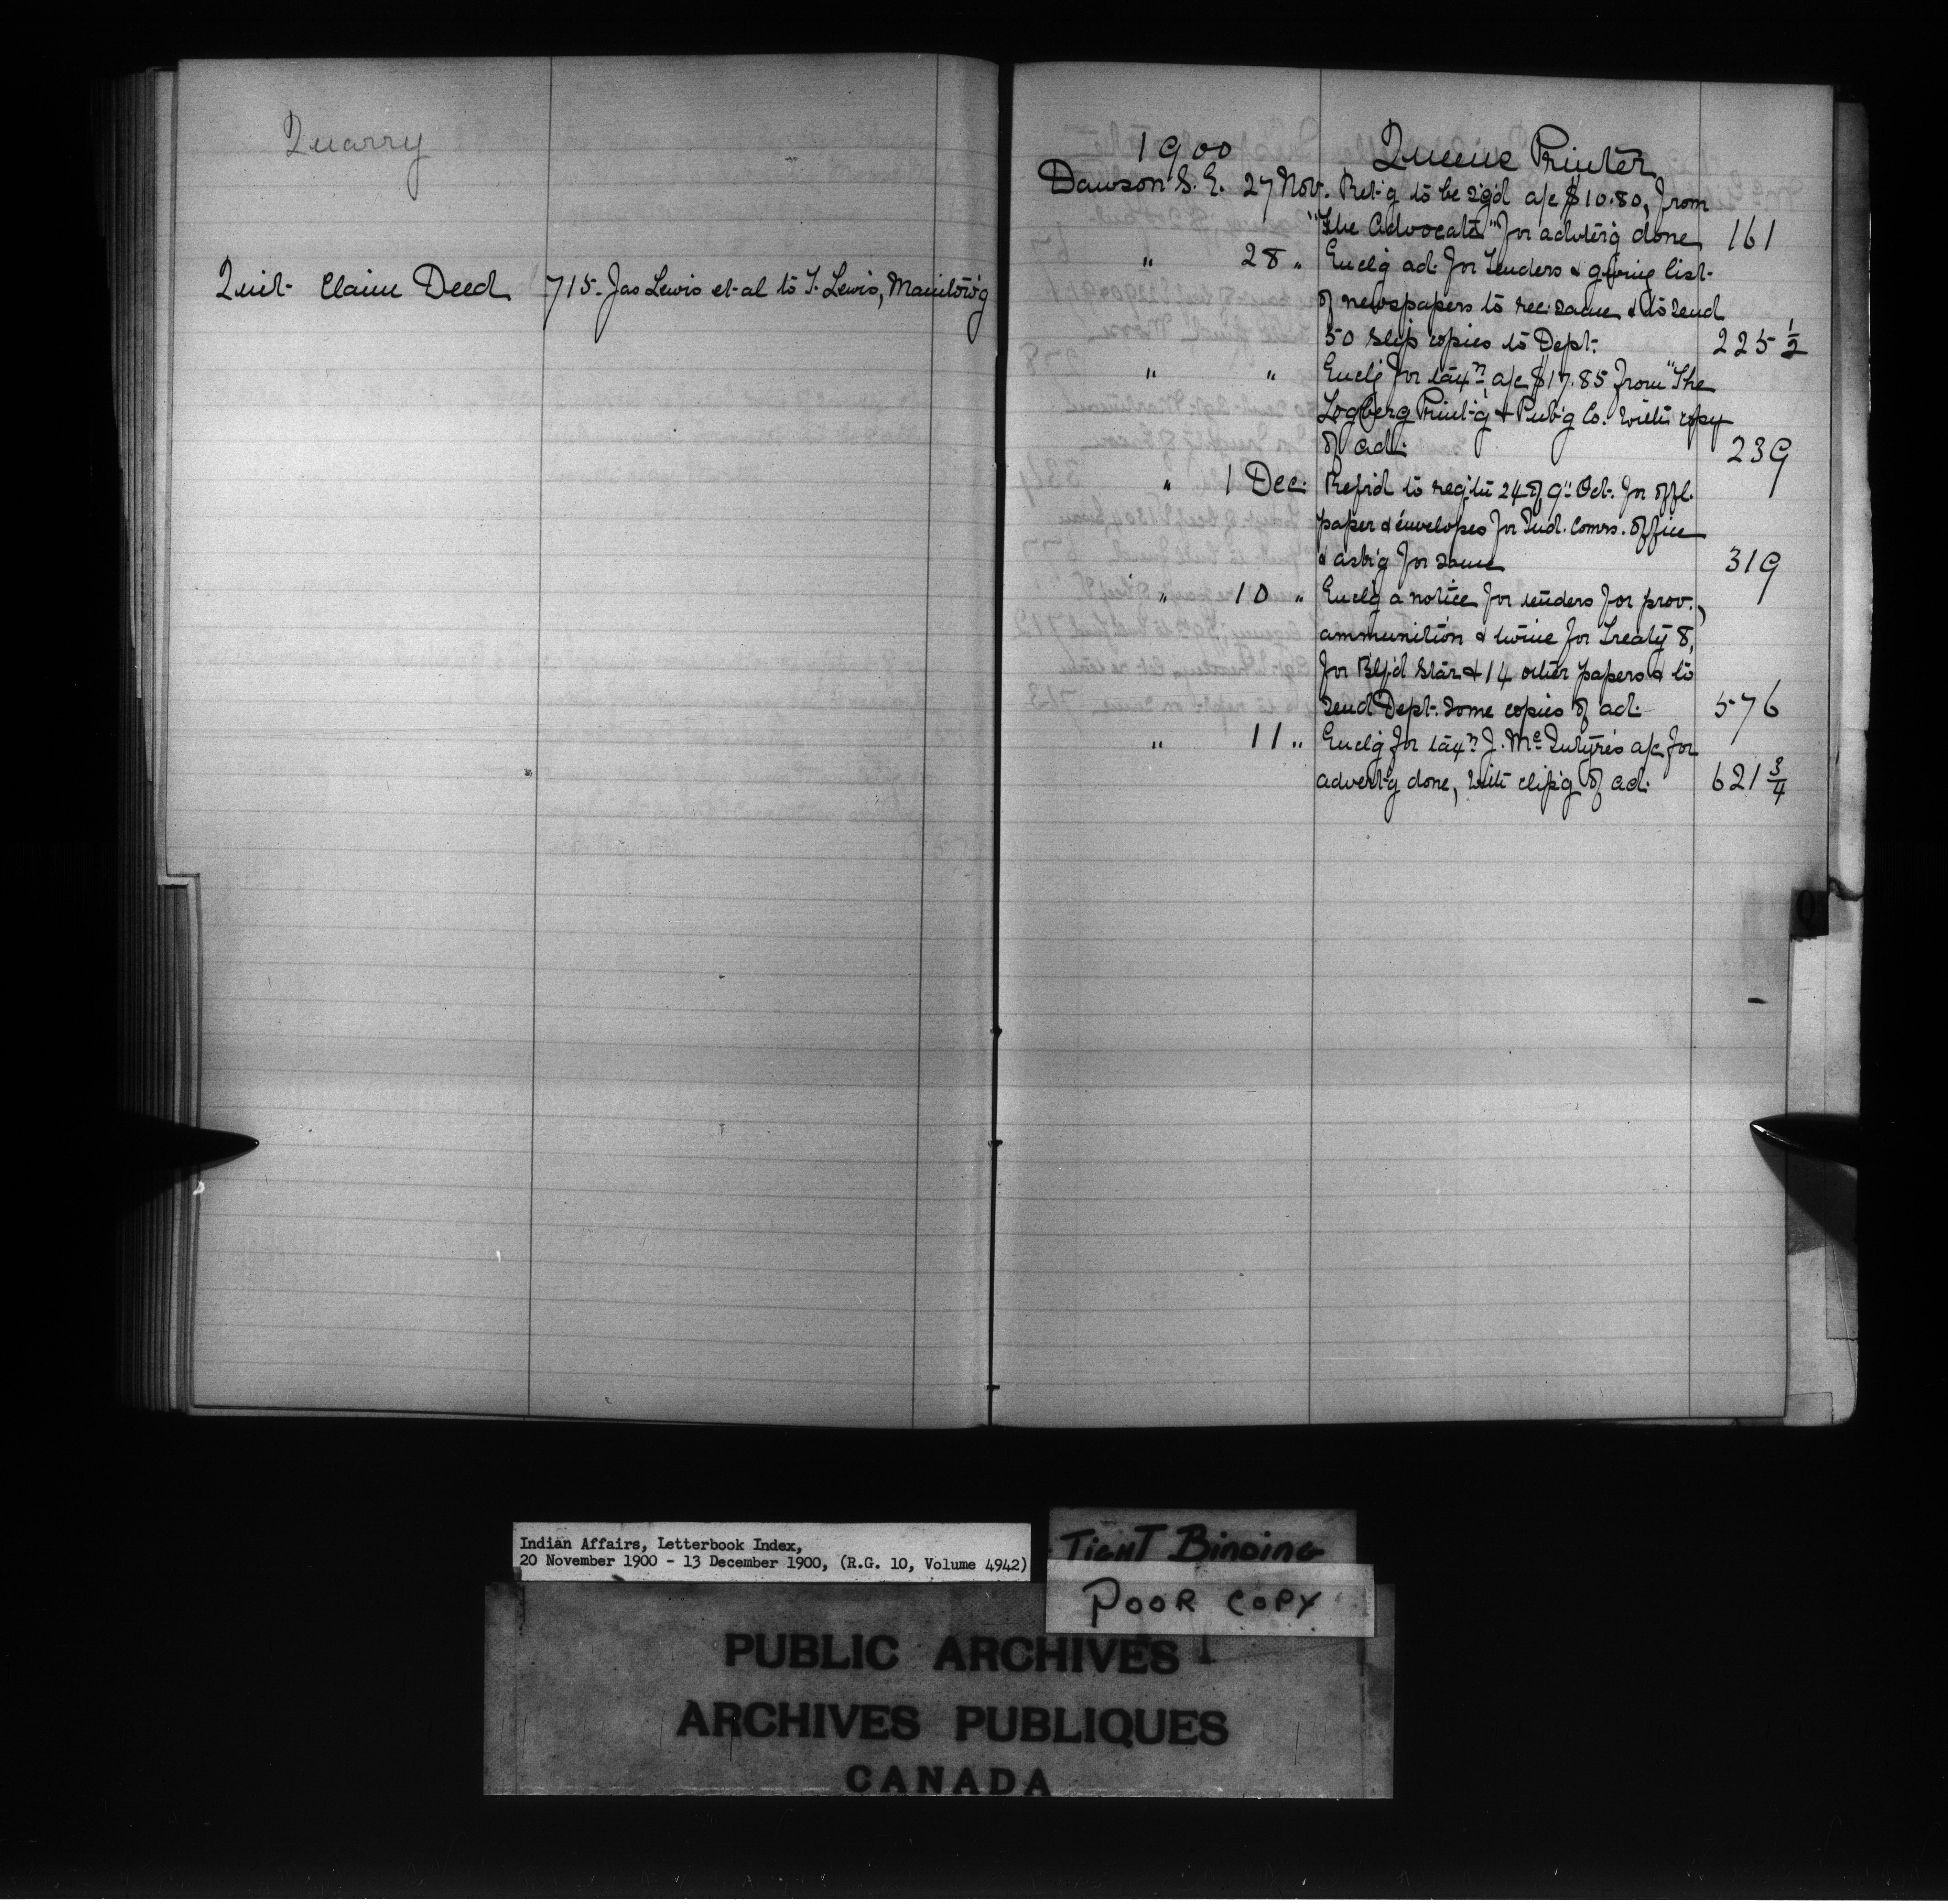 Quarry
Quit Claim Deed 715 - Jas Lewis et al to T. Lewis, Manitow'g
1900 Queens Printer
Dawson S. E. 27 Nov. Ret'g to be sg'd a/c $10.80, from
"The Advocate" for advter'g done 161
" 28 " Encl'g ad. for tenders & giving list
of newspapers to rec. same & to send
50 slip copies to Dept. 225 1/2
" " Encl'g for tax'n a/c $17.85 from "The
Logberg Print'g & Pub'g Co. with copy
of ad. 239
" 1 Dec. Ref'd to reqt'n 24 of 9" Oct. for offl.
paper & envelopes for Ind. Comrs. office
& ask'g for same 319
" 10 " Encl'g a notice for tenders for prov.,
ammunition & twine for Treaty 8,
for B'lf'd Star & 14 other papers & to
send Dept. some copies of ad. 576
" 11 " Encl'g for tax'n J. McIntyre's a/c for
advert'g done, with clip'g of ad. 621 3/4
Q
Indian Affairs, Letterbook Index,
20 November 1900 - 13 December 1900, (R.G. 10, Volume 4942)
TIGHT BINDING
POOR COPY
PUBLIC ARCHIVES
ARCHIVES PUBLIQUES
CANADA